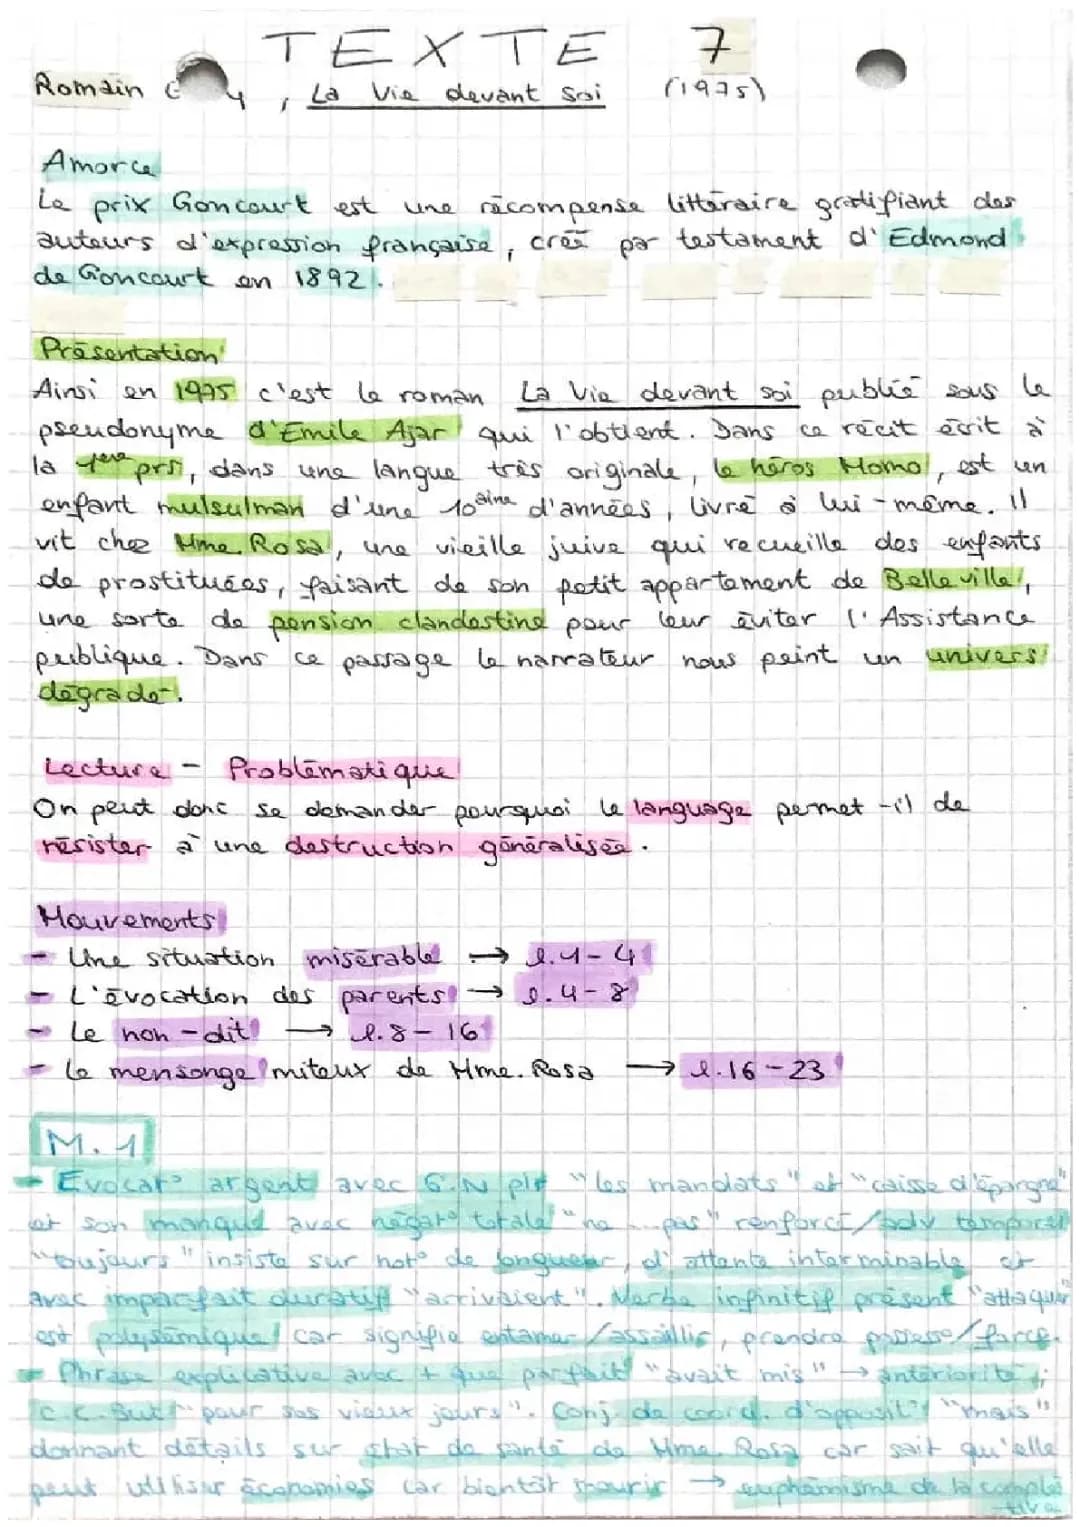 TEXTE 7
Romain G y, La Vie devant soi (1975)
Amorce
Le prix Goncourt est une récompense littéraire gratifiant des
auteurs d'expression française, créé par testament d'Edmond
de Goncourt en 1892.
Présentation
Ainsi en 1975 c'est le roman La Vie devant soi publié sous le
pseudonyme d'Emile Ajar qui l'obtient. Dans ce récit écrit à
la 1ère prs, dans une langue très originale, le héros Momo, est un
enfant mulsulman d'une 10aine d'années, livré à lui-même. Il
vit chez Mme Rosa, une vieille juive qui recueille des enfants
de prostituées, faisant de son petit appartement de Belleville,
une sorte de pension clandestine pour leur éviter l'Assistance
publique. Dans ce passage le narrateur nous peint un univers
dégradé.
Lecture - Problématique
On peut donc se demander pourquoi le language permet-il de
résister à une destruction généralisée.
Mouvements
- Une situation misérable → l.1-4
- L'évocation des parents → l.4-8
- Le non-dit → l.8-16
- Le mensonge miteux de Mme. Rosa → l.16-23
M. 1
- Evocat° argent avec G.N plr "les mandats" et "caisse d'épargne"
et son manque avec négat° totale "ne ... pas" renforcé/adv temporel
"toujours" insiste sur not° de longueur, d'attente interminable et
avec imparfait duratif "arrivaient". Verbe infinitif présent "attaquer"
est polysémique car signifie entamer/assaillir, prendre possess°/force.
- Phrase explicative avec + que parfait "avait mis" → antériorité;
C.C.But "pour ses vieux jours". Conj. de coord. d'opposit° "mais"
donnant détails sur état de santé de Mme Rosa car sait qu'elle
peut utiliser économies car bientôt mourir → euphémisme de la complé
-tive